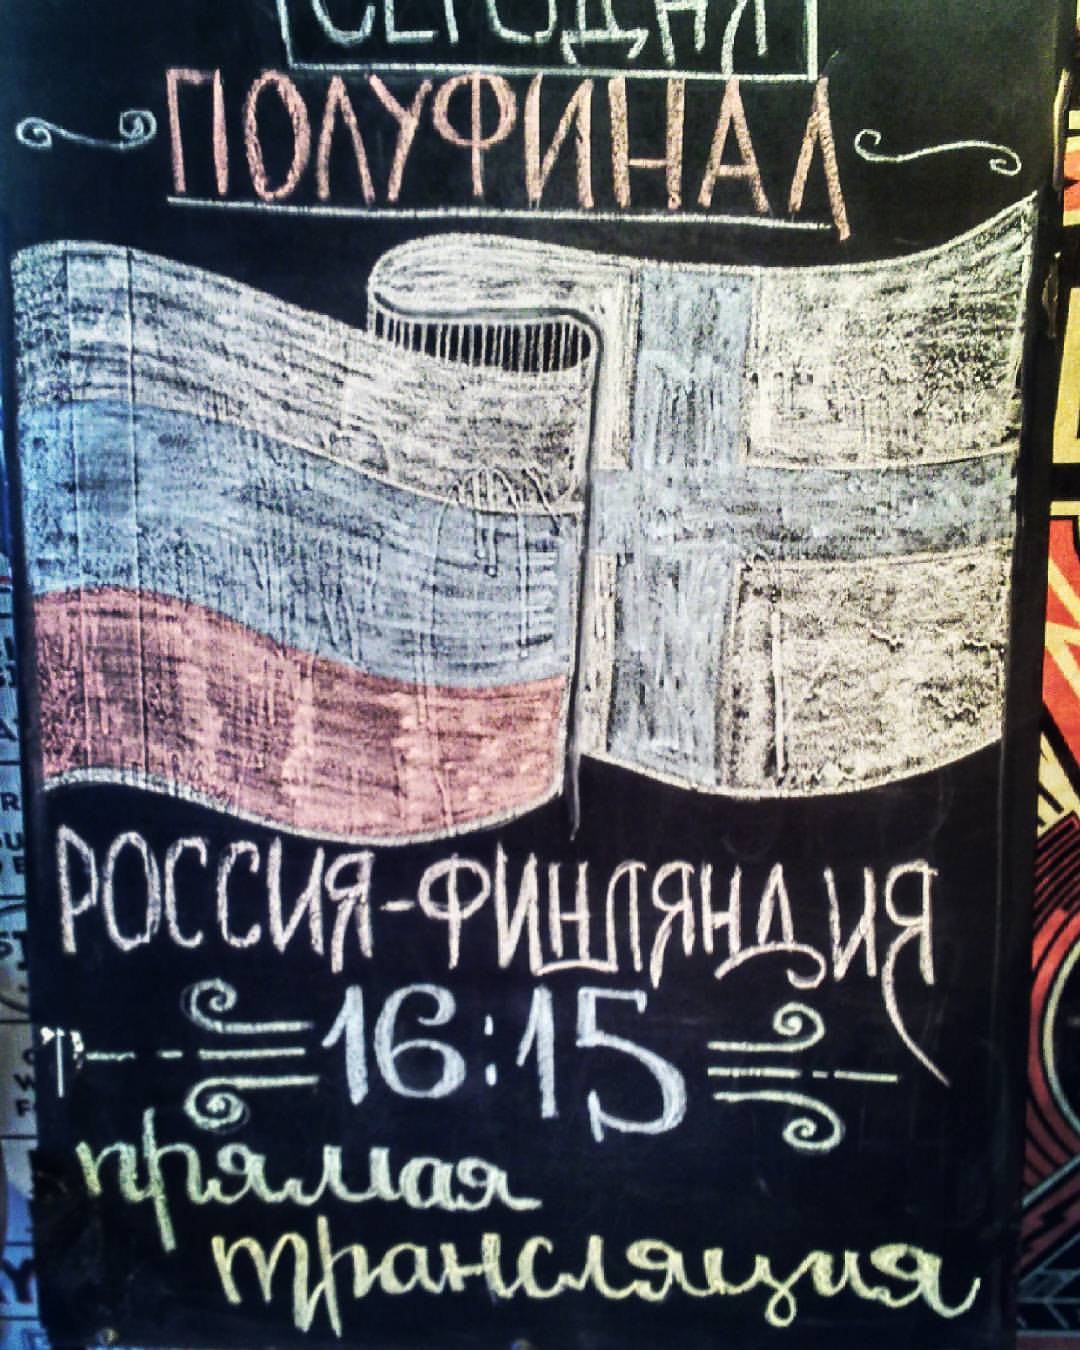 СЕГОДНЯ
ПОЛУФИНАЛ
РОССИЯ-ФИНЛЯНДИЯ
16:15
прямая
трансляция